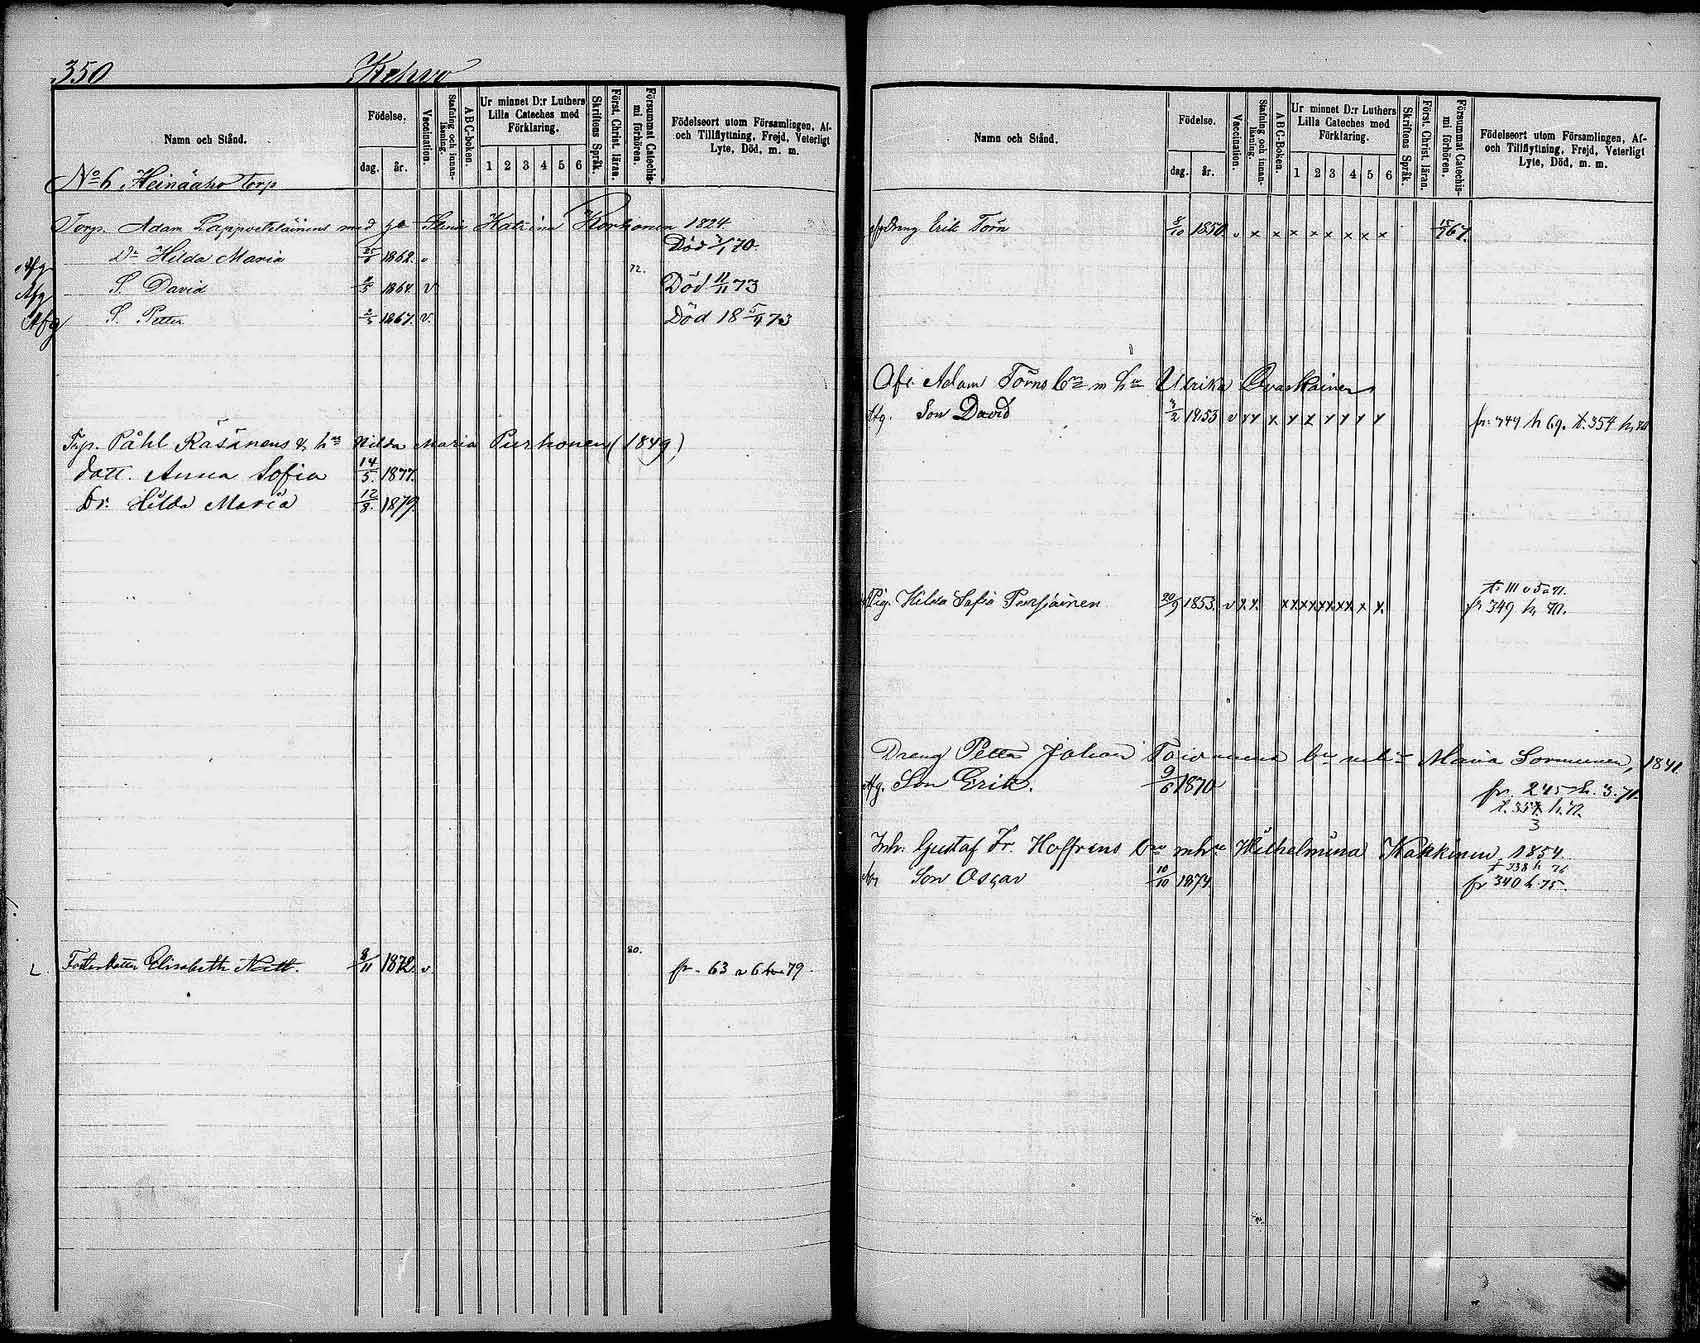 350 Kehvo
Namn och Stånd.
Födelse.
dag. år.
Vaccination.
Stafning och innanläsning.
ABC-boken.
Ur minnet D:r Luthers Lilla Cateches med Förklaring.
1 2 3 4 5 6
Skriftens Språk.
Först. Christ. läran.
Försummat Catechismi förhören.
Födelseort utom Församlingen, Af- och Tillflyttning, Frejd, Veterligt Lyte, Död, m. m.
No 6 Heinäaho Torp
Torp. Adam Lappveteläinens med Stina Katrina Korhonen 1824
Afg Dr Hilda Maria 25/6 1862. v Död 70.
Afg S. David 1864 v 72. Död 11/11 73
Afg S. Petter 1867. v. Död 18 5/4 73
Trp. Påhl Räsänens & hns Hilda Maria Purhonen (1849)
dott. Anna Sofia 14/5. 1877.
Dr. Hilda Maria 12/8. 1879
Fosterdotter Elisabeth Natt. 8/11 1872. v. 80. fr. 63 a 6 79.
Namn och Stånd.
Födelse.
dag. år.
Vaccination.
Stafning och innanläsning.
ABC-Boken.
Ur minnet D:r Luthers Lilla Cateches med Förklaring.
1 2 3 4 5 6
Skriftens Språk.
Först. Christ. läran.
Försummat Catechismi förhören.
Födelseort utom Församlingen, Af- och Tillflyttning, Frejd, Veterligt Lyte, Död, m. m.
Dreng Erik Törn 8/10 1850 v x x x x x x x x 67.
Adam Törns bn m hu Ulrika Ovaskainen
Afg. Son David 3/2 1853 v x x x x x x x x x fr. 349 h 69. t. 354 h.
t. 111
Pig. Hilda Sofia Pursiainen 20/9 1853. v x x x x x x x x x x x fr 349 h 70.
Dreng Petter Johan Toivanens bn Maria Sormunen, 1841.
Afg. Son Erik. 9/6 1870 fr. 245 h. 3. 71.
t. 357. h. 72.
3
Inh. Gustaf Fr. Hoffrens bn m hu Wilhelmina Kakkinen 1854.
t 338 h 76
Son Oscar 10/10 1874. fr 340 h. 75.